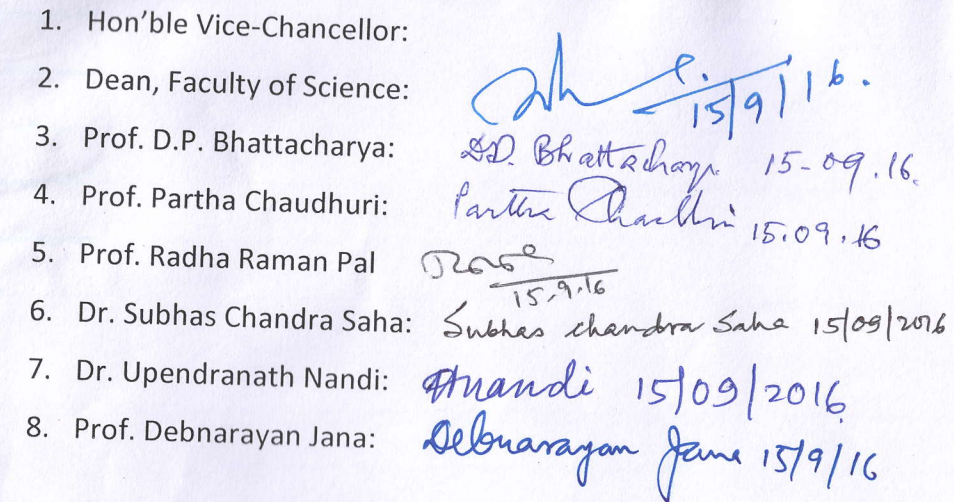 1. Hon'ble Vice-Chancellor:
2. Dean, Faculty of Science: 15/9/16.
3. Prof. D.P. Bhattacharya: D.P. Bhattacharya 15-09.16.
4. Prof. Partha Chaudhuri: Partha Chaudhuri 15.09.16
5. Prof. Radha Raman Pal 15.9.16
6. Dr. Subhas Chandra Saha: Subhas chandra Saha 15/09/2016
7. Dr. Upendranath Nandi: Unandi 15/09/2016
8. Prof. Debnarayan Jana: Debnarayan Jana 15/9/16